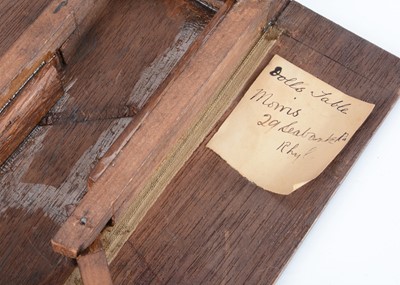 Dolls Table
Morris
29 Seabank Rd
Rhyl